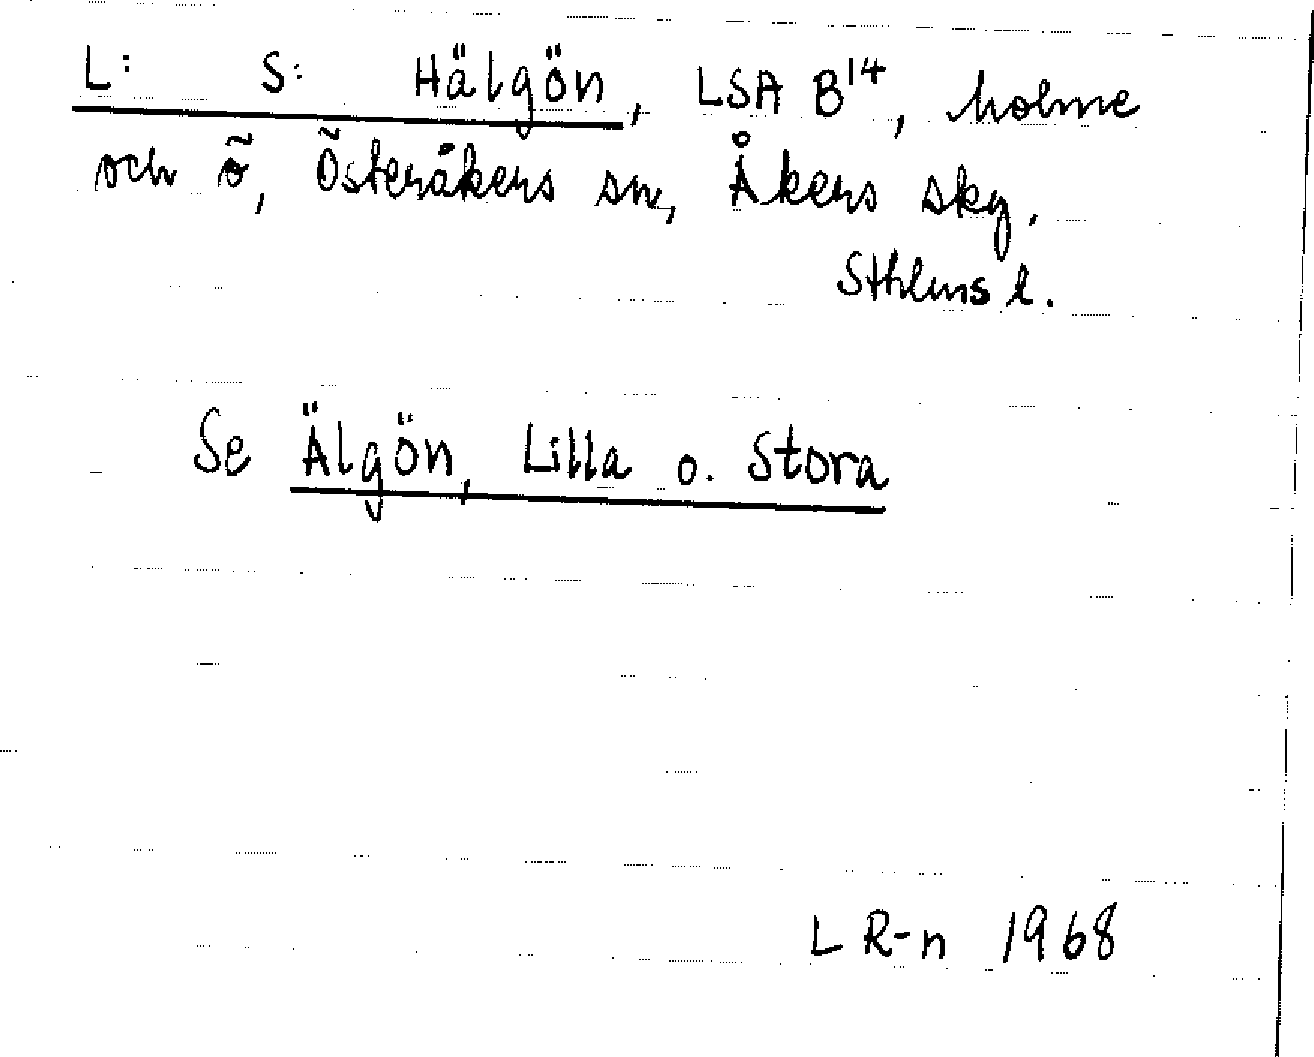 L: S: Hälgön, LSA B14, holme
och ö, Österåkers sn, Åkers skg.
Sthlms l.
Se Älgön, Lilla o. Stora
L R-n 1968